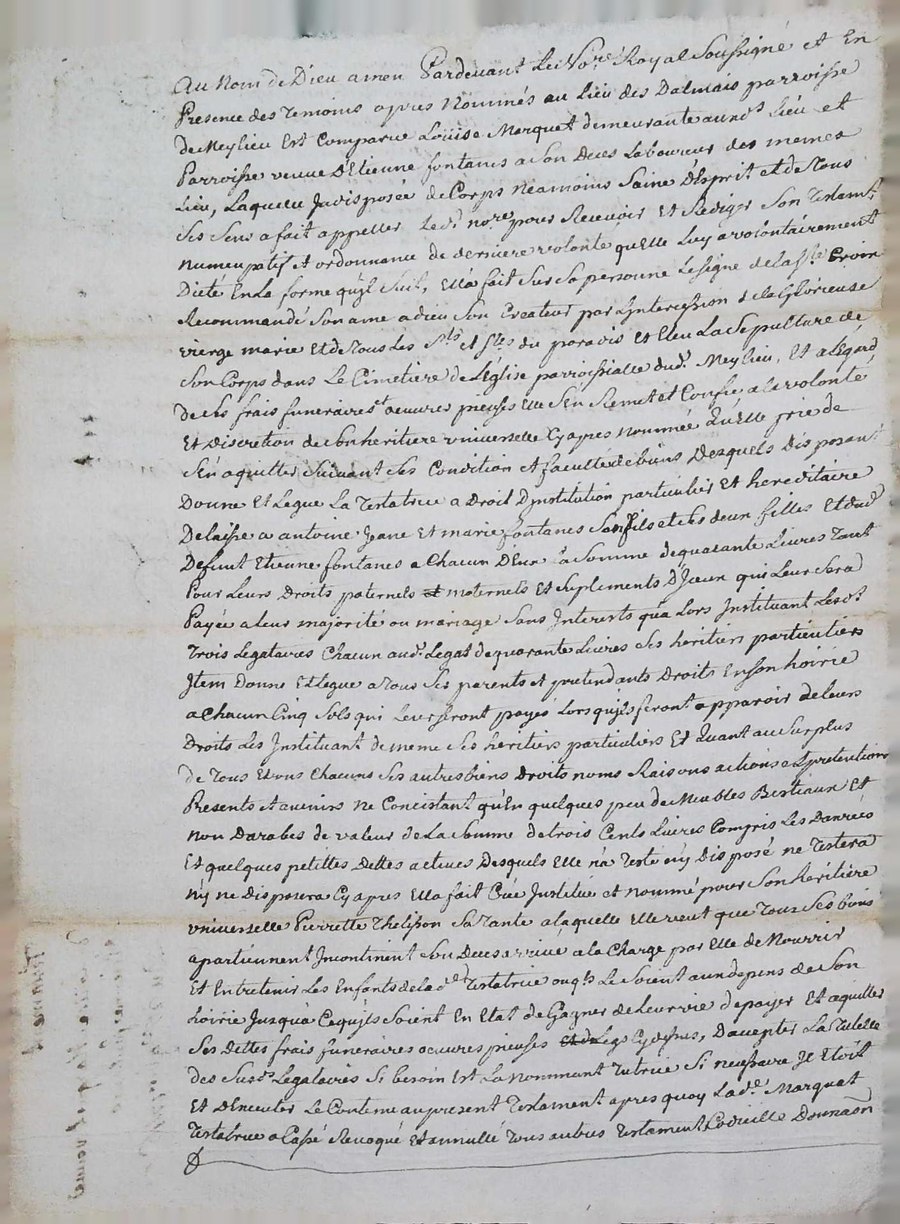 Au Nom de Dieu amen Pardevant Le No.re Royal Soussigné et En
Presence des temoins apres Nommés au Lieu des Dalmais parroisse
de Meylieu Est Comparue Louise Marquet demeurante aux.ds Lieu et
Parroisse veuve D'Etienne fontanes a Son Deces Laboureur des memes
Lieu, Laquelle Jndisposée de Corps Neamoins Saine D'Esprit et de Tous
Ses Sens a fait appeller Led.t no.re pour Recevoir Et Rediger Son Testam.t
Numcupatif et ordonnance de derniere volonté qu'elle Luy a volontairement
Dicté En La forme qu'jl Suit, Ella fait Sur Sa personne Le Signe de La S.te Croix
Recommandé Son ame a dieu Son Createur par L'jntercession de la Glorieuse
vierge marie Et de Tous Les S.ts et S.tes du paradis Et Eleu La Sepulture de
Son Corps dans Le Cimetiere de L'Eglise parroissialle dud.t Meylieu, Et a L'Egard
de Ses frais funeraires et oeuvres pieuses Elle S'En Remet et Confie a la volonté
Et Discretion de Son heritiere universelle Cyapres Nommée Qu'Elle prie de
S'En aquitter Suivant Ses Condition et faculté de biens Desquels Disposant
Donne Et Legue La Testatrice a Droit D'jnstitution particuliere Et hereditaire
Delaisse a antoine Jeane Et marie fontanes Son fils et Ses deux filles Et dud.t
Defunt Etienne fontanes a Chacun D'Eux La Somme de quarante Livres Tant
Pour Leurs Droits paternels et maternels Et Suplements D'jceux qui Leur Sera
Payée a leur majorité ou mariage Sans Jnterests qu'a Lors Jnstituant Lesd.ts
Trois Legataires Chacun aud.t Legat de quarante Livres Ses heritiers particuliers
Jtem Donne Et Legue a Tous Ses parents et pretendants Droits En Son hoirie
a Chacun Cinq Sols qui Leur Seront payés Lorsqu'jls feront apparoir de leurs
Droits Les Jnstituant de meme Ses heritiers particuliers Et Quant au Surplus
de Tous Et uns Chacuns Ses autres biens Droits noms Raisons actions et pretentions
Presents et avenirs Ne Concistant qu'En quelques peu de Meubles Bestiaux Et
Non Darabes de valeur de La Somme de trois Cents Livres Compris Les Danrées
Et quelques petittes Dettes actives Desquels Elle n'a Testé n'y Disposé ne Testera
n'y ne Disposera Cyapres Ella fait Créé Jnstitué et nommé pour Son Heritiere
universelle Pierrette Thelisson Sa Tante a laquelle Elle veut que Tous Ses biens
apartiennent Jncontinent Son Deces arrive a la Charge par Elle de Nourrir
Et Entretenir Les Enfants de la d.e Testatrice Le Soient aux depens de Son
hoirie Jusqu'a Ce qu'jls Soient En Etat de Gagner de Leur vie de payer Et aquitter
Ses Dettes frais funeraires oeuvres pieuses Et de Legs Cydessus, D'accepter La Tutelle
des Susd.ts Legataires Si besoin Est La Nommant Tutrice Si necessaire Je Etoit
Et D'Executer Le Contenu au present Testament apres quoy Lad.e Marquet
Testatrice a Cassé Revoqué Et annullé Tous autres Testament Codicille Donnaon